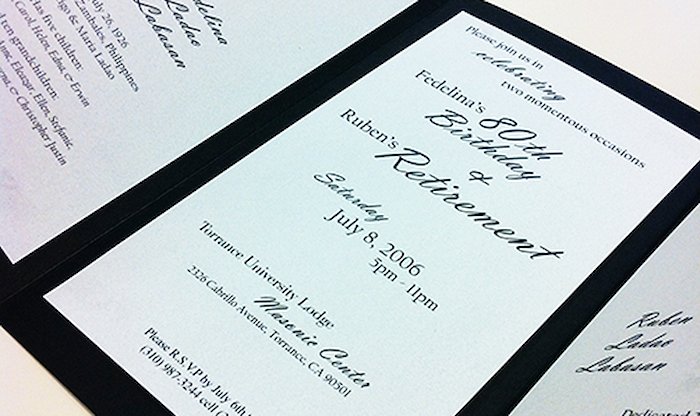 Fedelina
Ladao
Labasan
July 26, 1926
Zambales, Philippines
& Maria Ladao
Has five children:
Carol, Helen, Edna, & Erwin
ten grandchildren:
Anne, Eleazar, Ellen, Stefanie,
& Christopher Justin
Please join us in
celebrating
two momentous occasions
Fedelina's 80th
Birthday
&
Ruben's Retirement
Saturday
July 8, 2006
5pm - 11pm
Torrance University Lodge
Masonic Center
2326 Cabrillo Avenue, Torrance, CA 90501
Please R.S.V.P by July 6th
(310) 987-3244 cell
Ruben
Ladao
Labasan
Dedicated